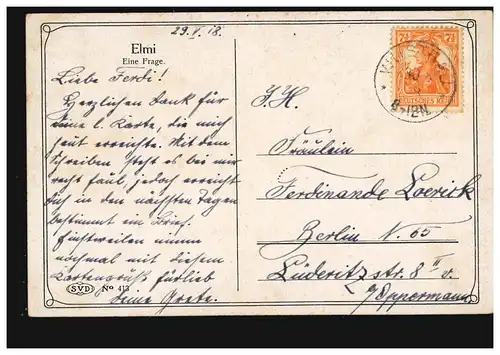 29.V.18.
Elmi
Eine Frage.
Liebe Ferdi!
Herzlichen Dank für
Deine l. Karte, die mich
heut erreichte. Mit dem
Schreiben steht es bei mir
recht faul, jedoch erreicht
Dich in den nächsten Tagen
bestimmt ein Brief.
Einstweilen nimm
nochmal mit diesem
Kartengruß fürlieb
Deine Grete.
SVD No 413
7½ 7½
DEUTSCHES REICH
8-12N.
Fräulein
Ferdinande Loerick
Berlin N. 65
Lüderitzstr. 8 II v.
b/Oppermann